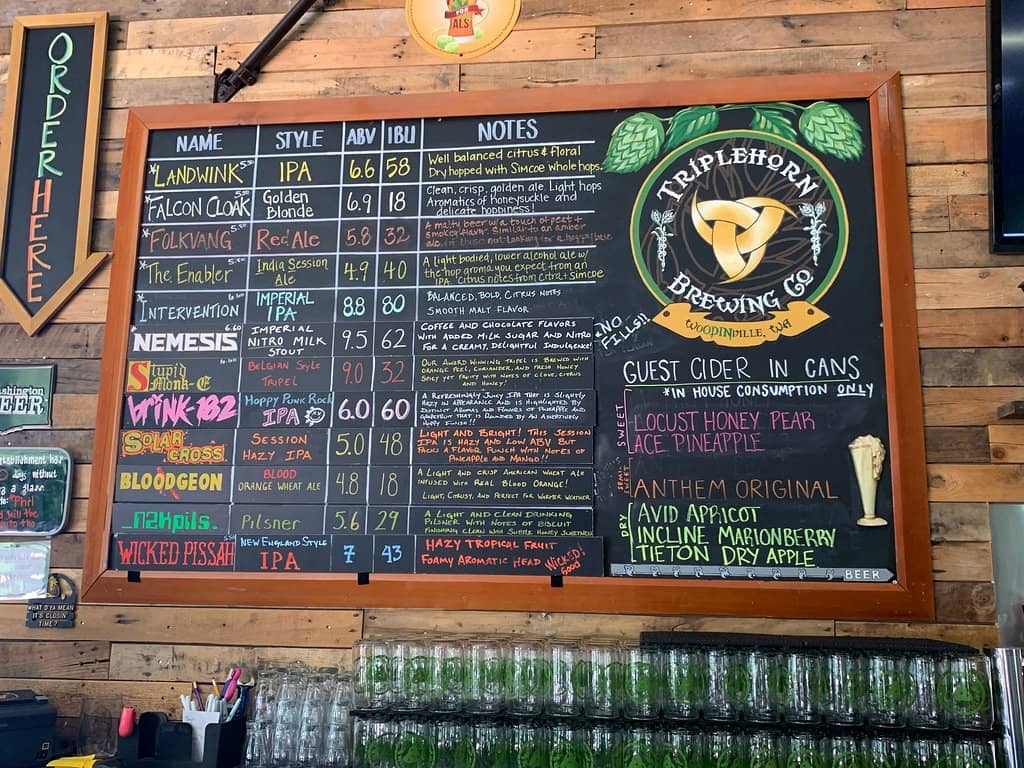 FOR
ALS
ORDER HERE
NAME STYLE ABV IBU NOTES
*LANDWINK IPA 6.6 58 Well balanced citrus & floral
Dry hopped with Simcoe whole hops.
*FALCON CLOAK Golden Blonde 6.9 18 Clean, crisp, golden ale. Light hops
Aromatics of honeysuckle and
delicate hoppiness!
*FOLKVANG Red Ale 5.8 32 A malty beer w/a touch of peat +
smokey flavor. Similar to an amber
ale,
*The Enabler India Session Ale 4.9 40 A light bodied, lower alcohol ale w/
the hop aroma you expect from an
IPA. Citrus notes from citra + Simcoe
*INTERVENTION IMPERIAL IPA 8.8 80 BALANCED, BOLD, CITRUS NOTES
SMOOTH MALT FLAVOR
NEMESIS 6.60 IMPERIAL NITRO MILK STOUT 9.5 62 COFFEE AND CHOCOLATE FLAVORS
WITH ADDED MILK SUGAR AND NITRO
FOR A CREAMY, DELIGHTFUL INDULGENCE!
Stupid Monk-E BELGIAN STYLE TRIPEL 9.0 32 OUR AWARD WINNING TRIPEL IS BREWED WITH
ORANGE PEEL, CORIANDER, AND FRESH HONEY
SPICY YET FRUITY WITH NOTES OF CLOVE, CITRUS
AND HONEY!
brink-182 HOPPY PUNK ROCK IPA 6.0 60 A REFRESHINGLY JUICY IPA THAT IS SLIGHTLY
HAZY IN APPEARANCE AND IS HIGHLIGHTED BY
DISTINCT AROMAS AND FLAVORS OF PINEAPPLE AND
GRAPEFRUIT THAT IS ROUNDED BY AN ASSERTIVELY
HOPPY FINISH!!
SOLAR CROSS SESSION HAZY IPA 5.0 48 LIGHT AND BRIGHT! THIS SESSION
IPA IS HAZY AND LOW ABV BUT
PACKS A FLAVOR PUNCH WITH NOTES OF
PINEAPPLE AND MANGO!!
BLOODGEON BLOOD ORANGE WHEAT ALE 4.8 18 A LIGHT AND CRISP AMERICAN WHEAT ALE
INFUSED WITH REAL BLOOD ORANGE!
LIGHT, CITRUSY, AND PERFECT FOR WARMER WEATHER
_n2kpils_ Pilsner 5.6 29 A LIGHT AND CLEAN DRINKING
PILSNER WITH NOTES OF BISCUIT
FINISHING CLEAN WITH SUBTLE HONEY SWEETNESS
WICKED PISSAH NEW ENGLAND STYLE IPA 7 43 HAZY TROPICAL FRUIT
FOAMY AROMATIC HEAD WICKED! GOOD
TRIPLEHORN
BREWING CO
WOODINVILLE, WA
*NO
FILLS!!
GUEST CIDER IN CANS
*IN HOUSE CONSUMPTION ONLY
SWEET
LOCUST HONEY PEAR
ACE PINEAPPLE
SEMI-SWEET
ANTHEM ORIGINAL
DRY
AVID APRICOT
INCLINE MARIONBERRY
TIETON DRY APPLE
BEER
washington
BEER
WHAT D'YA MEAN
IT'S CLOSIN'
TIME?